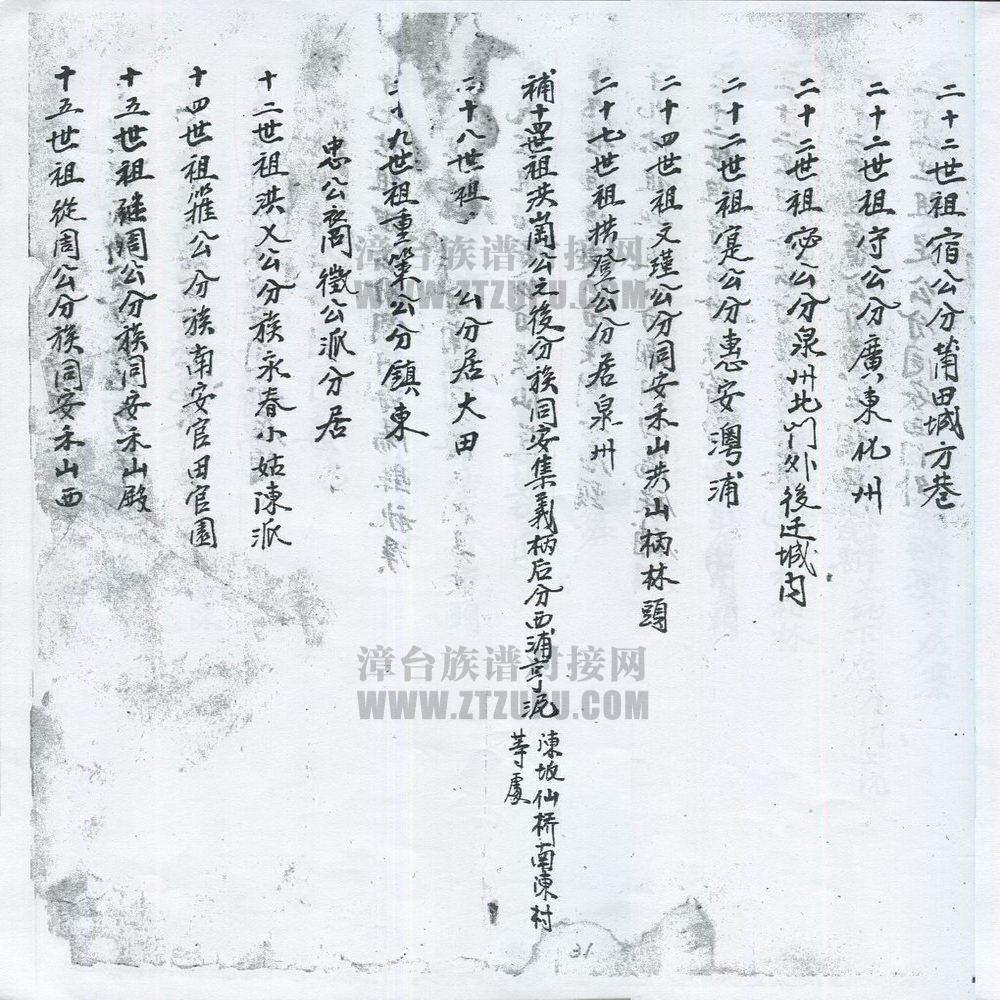 二十二世祖宿公分莆田城方巷
二十二世祖守公分廣東化州
二十二世祖宓公分泉州北門外後迁城内
二十二世祖寔公分惠安潯浦
二十四世祖文瑾公分同安禾山洪山柄林頭
二十七世祖 登公分居泉州
補十四世祖洪 公之後分族同安集義柄后分西浦亨泥
陳坂仙桥南陳村
等處
十八世祖 公分居大田
二十九世祖重策公分鎮東
忠公裔徵公派分居
十二世祖洪义公分族永春小姑陳派
十四世祖 公分族南安官田官園
十五世祖繼周公分族同安禾山殿
十五世祖從周公分族同安禾山西
31
漳台族谱对接网
WWW.ZTZUPU.COM
漳台族谱对接网
WWW.ZTZUPU.COM